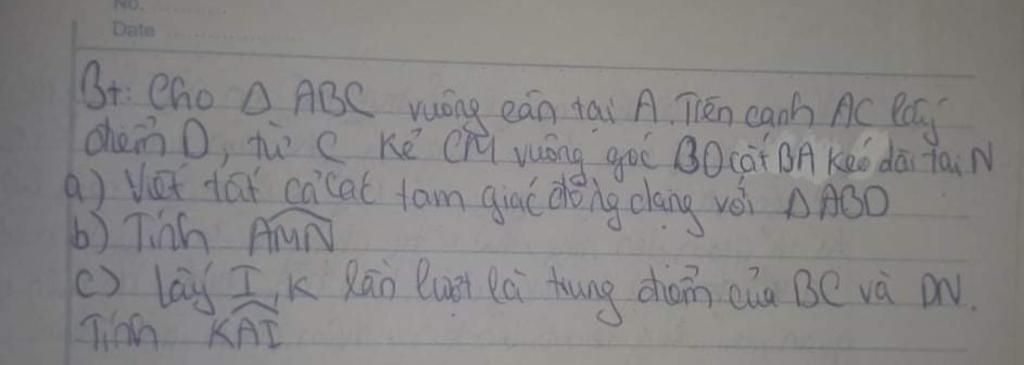 No.
Date
Bt: Cho Δ ABC vuông cân tại A. Trên cạnh AC lấy
điểm D, từ C kẻ CM vuông góc BD cắt BA kéo dài tại N
a) Viết tất cả cat tam giác đồng dạng với Δ ABD
b) Tính AMN
c) Lấy I, K lần lượt là trung điểm của BC và DN.
Tính KAI